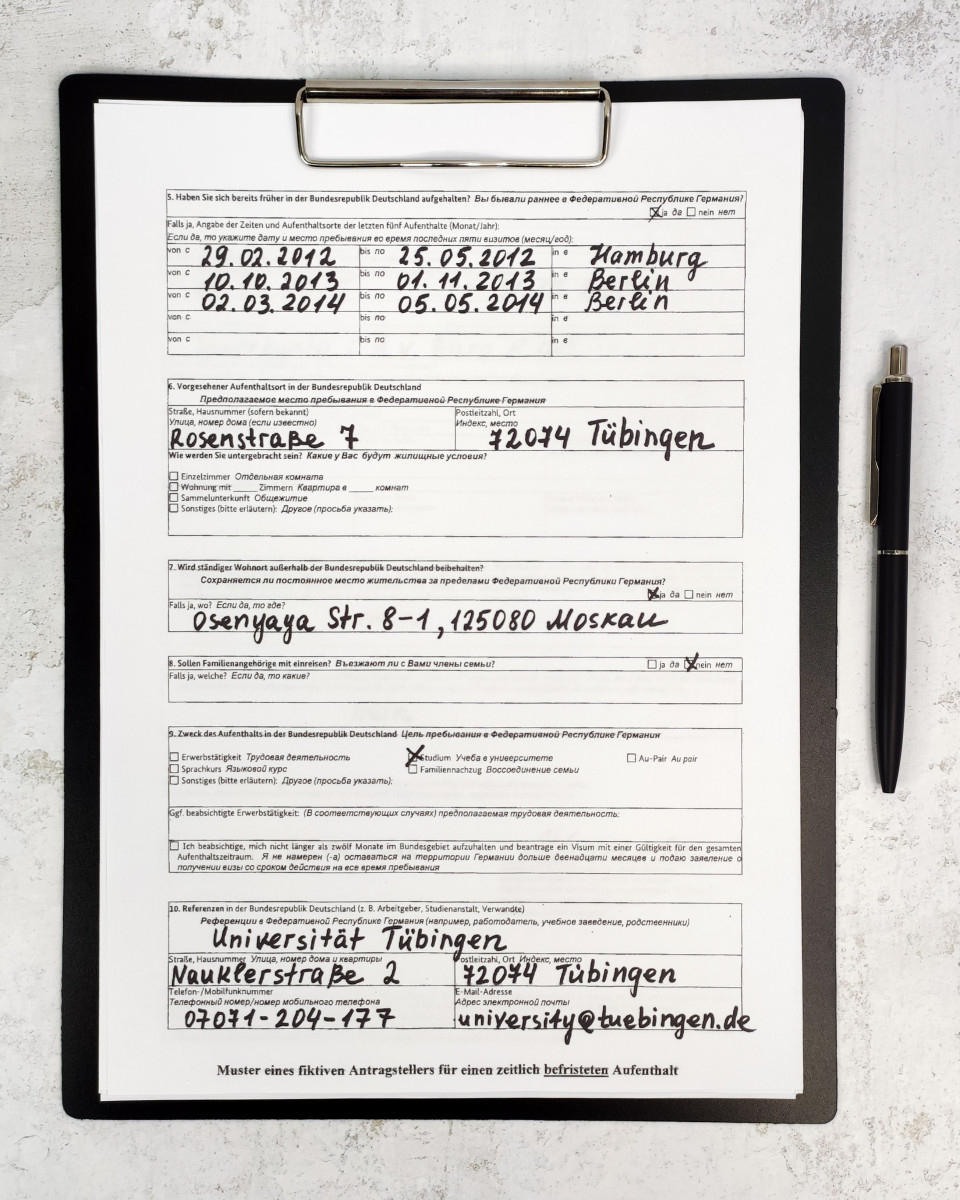 5. Haben Sie sich bereits früher in der Bundesrepublik Deutschland aufgehalten? Вы бывали раннее в Федеративной Республике Германия?
ja да nein нет
Falls ja, Angabe der Zeiten und Aufenthaltsorte der letzten fünf Aufenthalte (Monat/Jahr):
Если да, то укажите дату и место пребывания во время последних пяти визитов (месяц/год):
von с 29.02.2012 bis по 25.05.2012 in в Hamburg
von с 10.10.2013 bis по 01.11.2013 in в Berlin
von с 02.03.2014 bis по 05.05.2014 in в Berlin
von с bis по in в
von с bis по in в
6. Vorgesehener Aufenthaltsort in der Bundesrepublik Deutschland
Предполагаемое место пребывания в Федеративной Республике Германия
Straße, Hausnummer (sofern bekannt) Postleitzahl, Ort
Улица, номер дома (если известно) Индекс, место
Rosenstraße 7 72074 Tübingen
Wie werden Sie untergebracht sein? Какие у Вас будут жилищные условия?
Einzelzimmer Отдельная комната
Wohnung mit ____ Zimmern Квартира в ____ комнат
Sammelunterkunft Общежитие
Sonstiges (bitte erläutern): Другое (просьба указать):
7. Wird ständiger Wohnort außerhalb der Bundesrepublik Deutschland beibehalten?
Сохраняется ли постоянное место жительства за пределами Федеративной Республики Германия?
ja да nein нет
Falls ja, wo? Если да, то где?
Osenyaya Str. 8-1, 125080 Moskau
8. Sollen Familienangehörige mit einreisen? Въезжают ли с Вами члены семьи? ja да nein нет
Falls ja, welche? Если да, то какие?
9. Zweck des Aufenthalts in der Bundesrepublik Deutschland Цель пребывания в Федеративной Республике Германия
Erwerbstätigkeit Трудовая деятельность Studium Учеба в университете Au-Pair Au pair
Sprachkurs Языковой курс Familiennachzug Воссоединение семьи
Sonstiges (bitte erläutern): Другое (просьба указать):
Ggf. beabsichtigte Erwerbstätigkeit: (В соответствующих случаях) предполагаемая трудовая деятельность:
Ich beabsichtige, mich nicht länger als zwölf Monate im Bundesgebiet aufzuhalten und beantrage ein Visum mit einer Gültigkeit für den gesamten
Aufenthaltszeitraum. Я не намерен (-а) оставаться на территории Германии дольше двенадцати месяцев и подаю заявление о
получении визы со сроком действия на все время пребывания
10. Referenzen in der Bundesrepublik Deutschland (z. B. Arbeitgeber, Studienanstalt, Verwandte)
Референции в Федеративной Республике Германия (например, работодатель, учебное заведение, родственники)
Universität Tübingen
Straße, Hausnummer Улица, номер дома и квартиры Postleitzahl, Ort Индекс, место
Nauklerstraße 2 72074 Tübingen
Telefon-/Mobilfunknummer E-Mail-Adresse
Телефонный номер/номер мобильного телефона Адрес электронной почты
07071-204-177 university@tuebingen.de
Muster eines fiktiven Antragstellers für einen zeitlich befristeten Aufenthalt